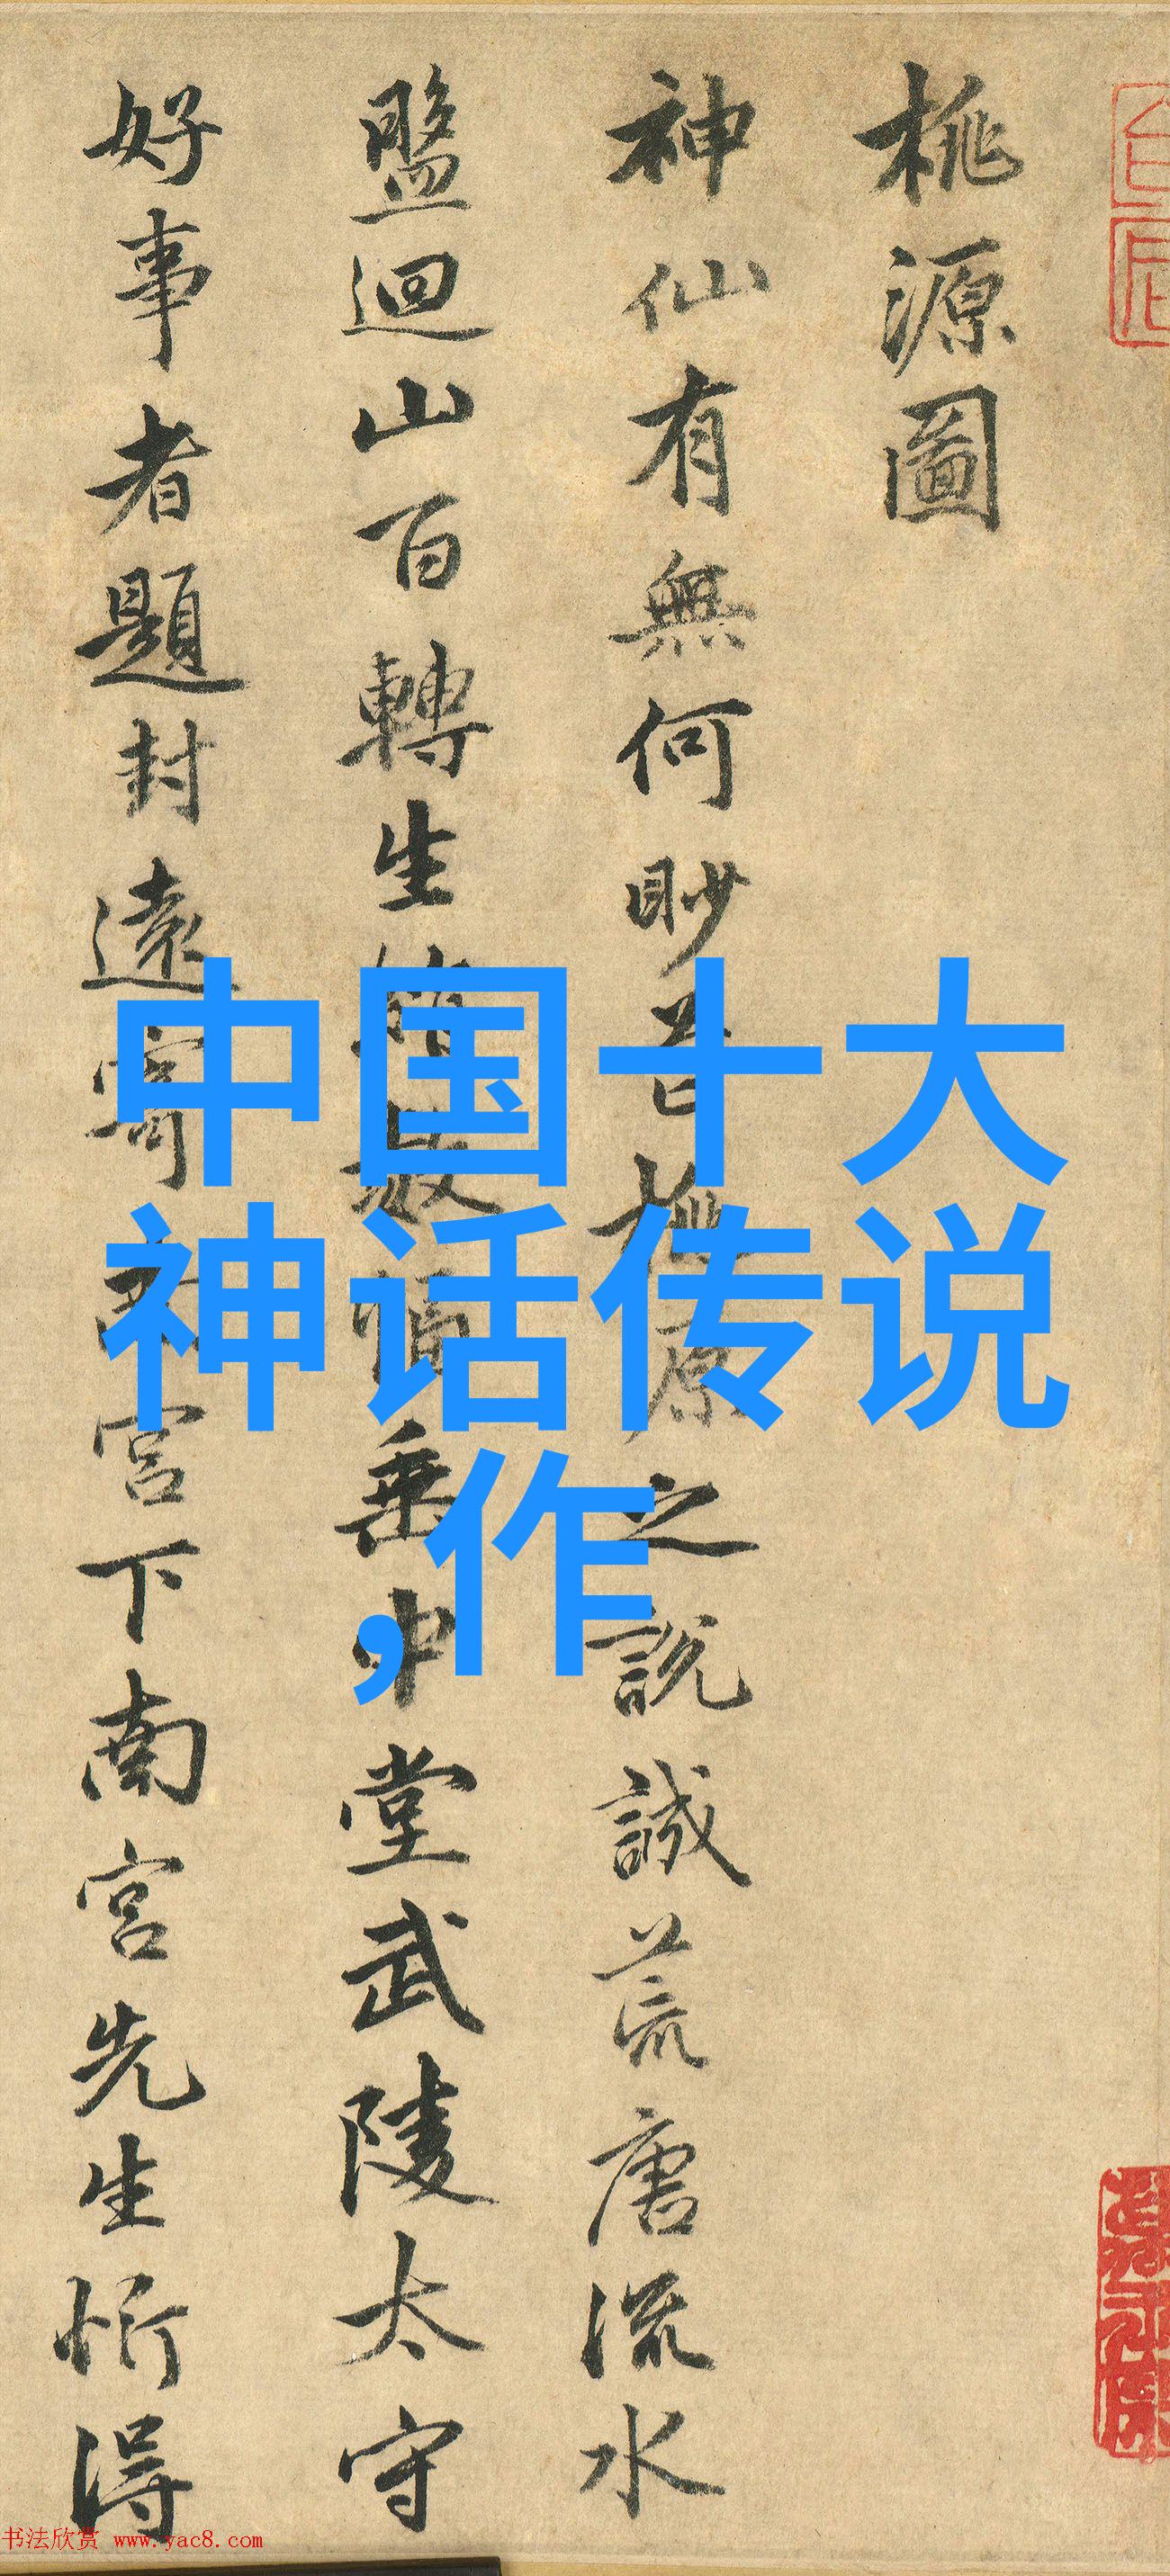 桃源圖
神仙有無何眇芒桃源之說誠荒唐流水
盤迴山百轉生綃數幅垂中堂武陵太守
好事者題封遠寄南宮下南宮先生忻得
中国十大
神话传说
,作
书法欣赏 www.yac8.com